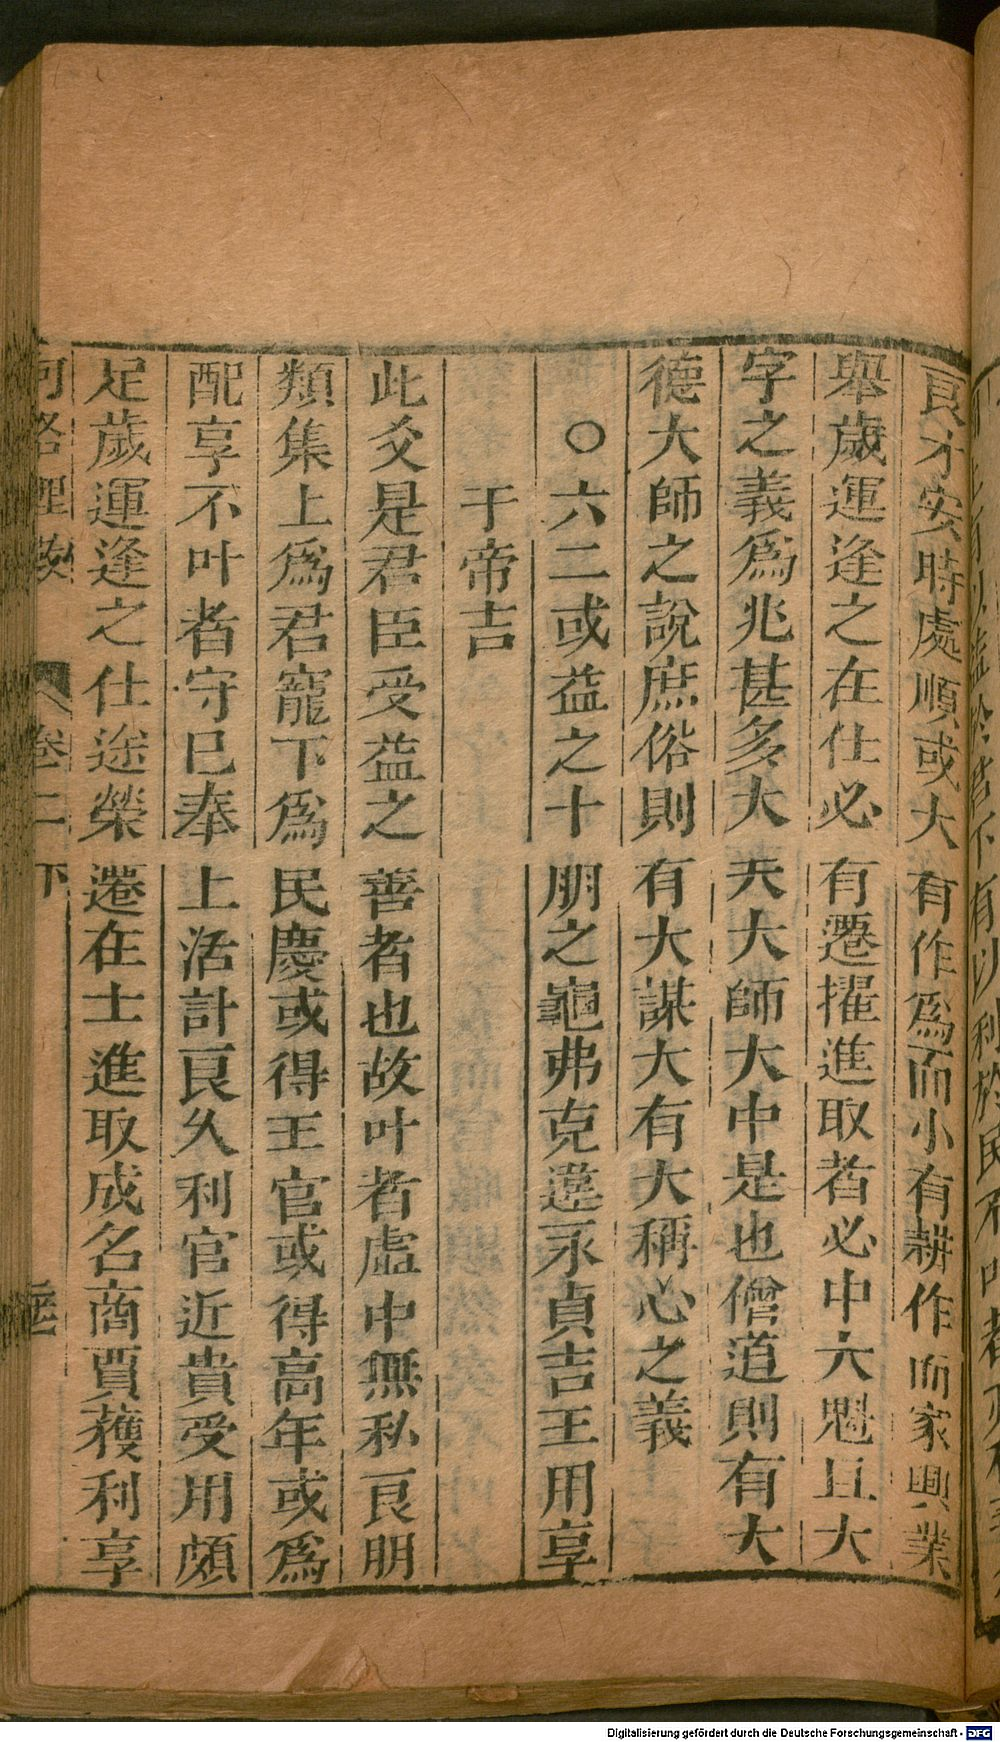 良才安時處順或大有作爲而小有耕作而家興業
舉歲運逢之在仕必有遷擢進取者必中大魁且大
字之義爲兆甚多大夫大師大中是也僧道則有大
德大師之說庶俗則有大謀大有大稱心之義
○六二或益之十朋之龜弗克違永貞吉王用享
于帝吉
此爻是君臣受益之善者也故叶者虛中無私良朋
類集上爲君寵下爲民慶或得王官或得高年或爲
配享不叶者守巳奉上活計良久利官近貴受用頗
足歲運逢之仕途榮遷在士進取成名商賈獲利享
河洛理數
卷二下
Digitalisierung gefördert durch die Deutsche Forschungsgemeinschaft - DFG